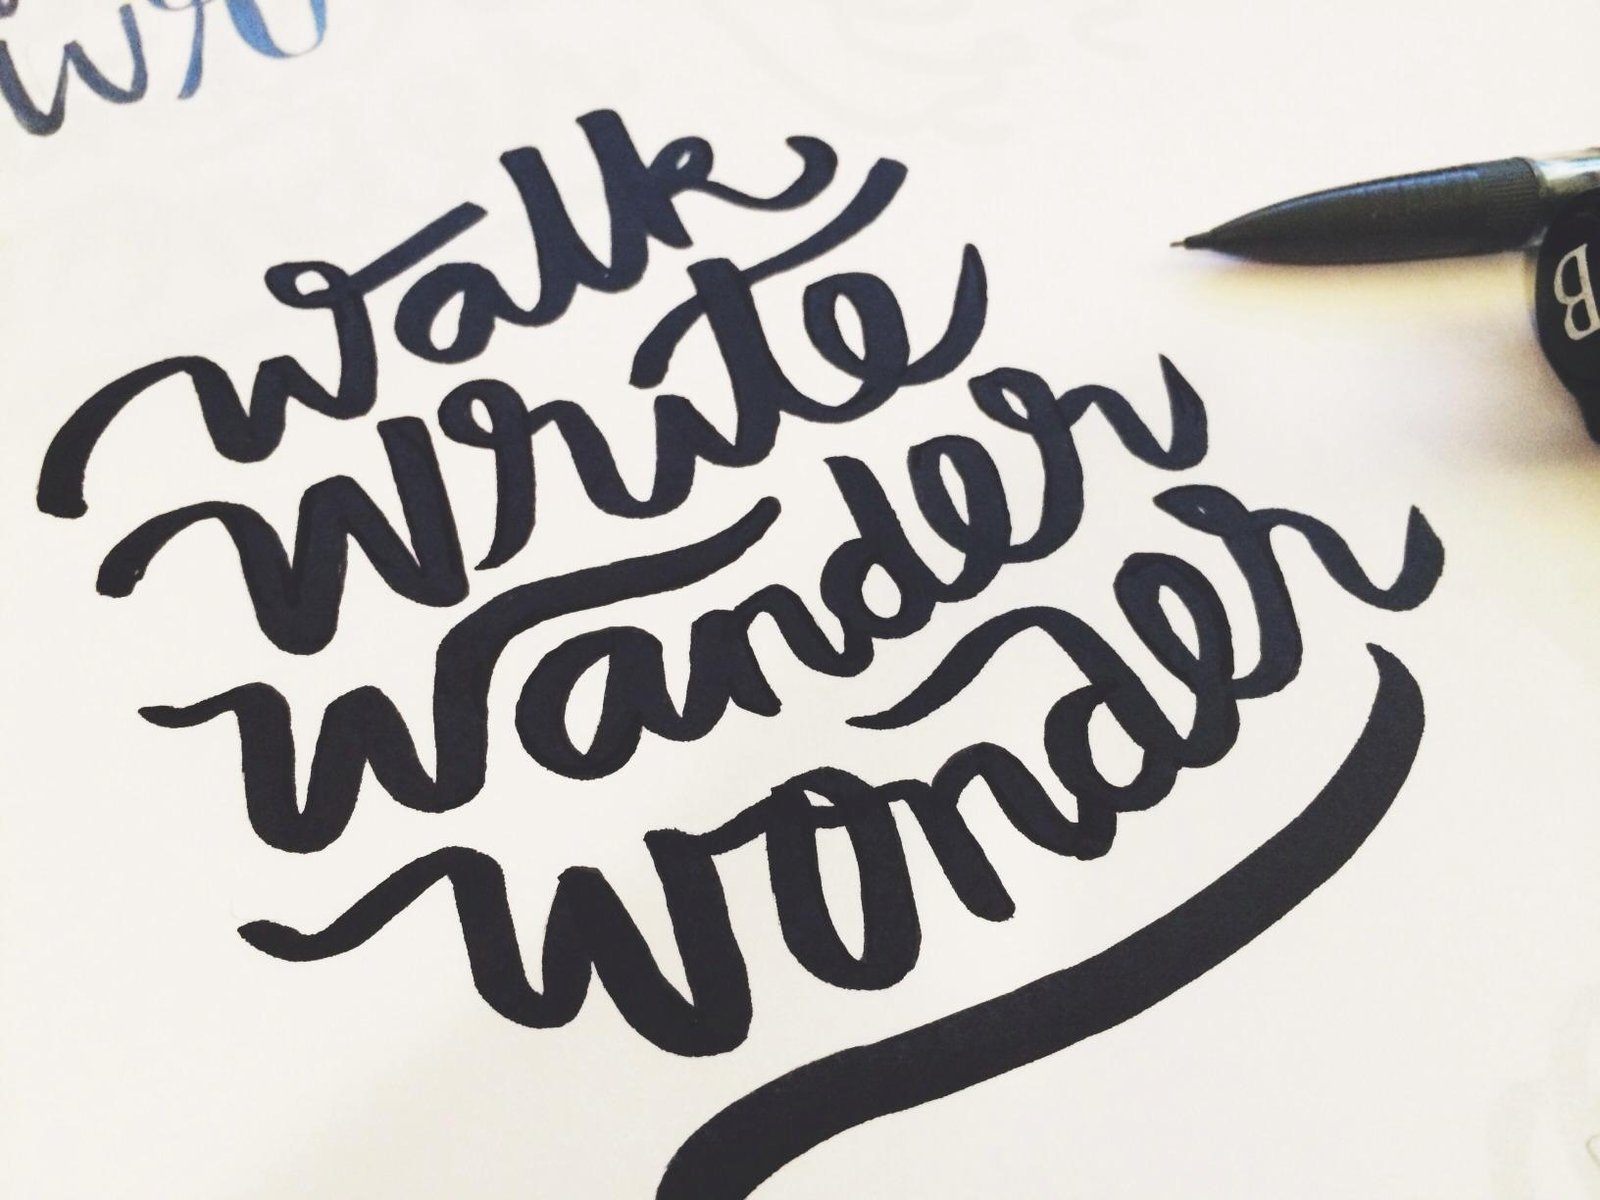 walk
write
wander
wonder
B